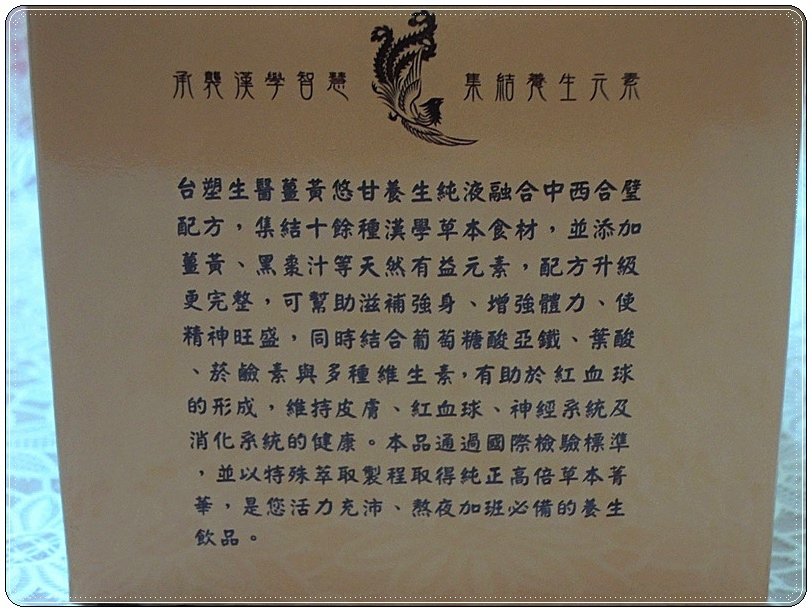 承襲漢學智慧 集結養生元素
台塑生醫薑黃悠甘養生純液融合中西合璧
配方，集結十餘種漢學草本食材，並添加
薑黃、黑棗汁等天然有益元素，配方升級
更完整，可幫助滋補強身、增強體力、使
精神旺盛，同時結合葡萄糖酸亞鐵、葉酸
、菸鹼素與多種維生素，有助於紅血球
的形成，維持皮膚、紅血球、神經系統及
消化系統的健康。本品通過國際檢驗標準
，並以特殊萃取製程取得純正高倍草本菁
華，是您活力充沛、熬夜加班必備的養生
飲品。